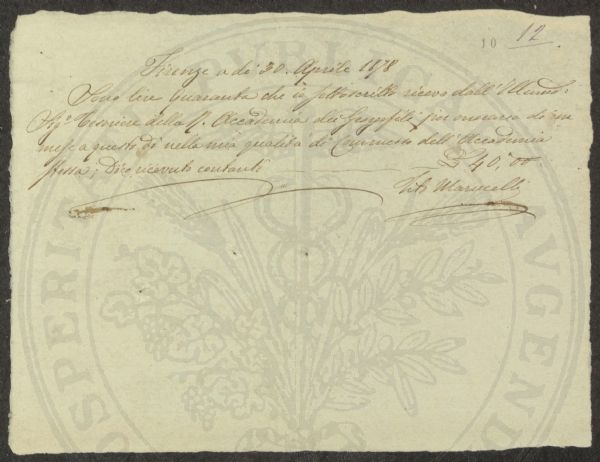 10 12
Firenze a dì 30. Aprile 1878
Sono lire Quaranta che io sottoscritto ricevo dall'Illmo:
Sigr Tesoriere della R. Accademia dei Georgofili per onorario di un
mese a questo dì nella mia qualità di Commesso dell'Accademia
stessa; Dico ricevuto contanti £ 40,00
Vito
PROSPERITATI PUBLICAE AUGENDAE